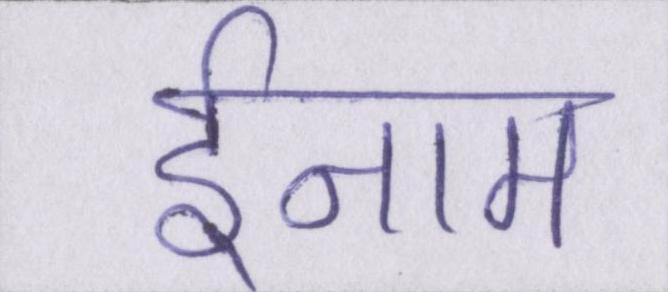 ईनाम